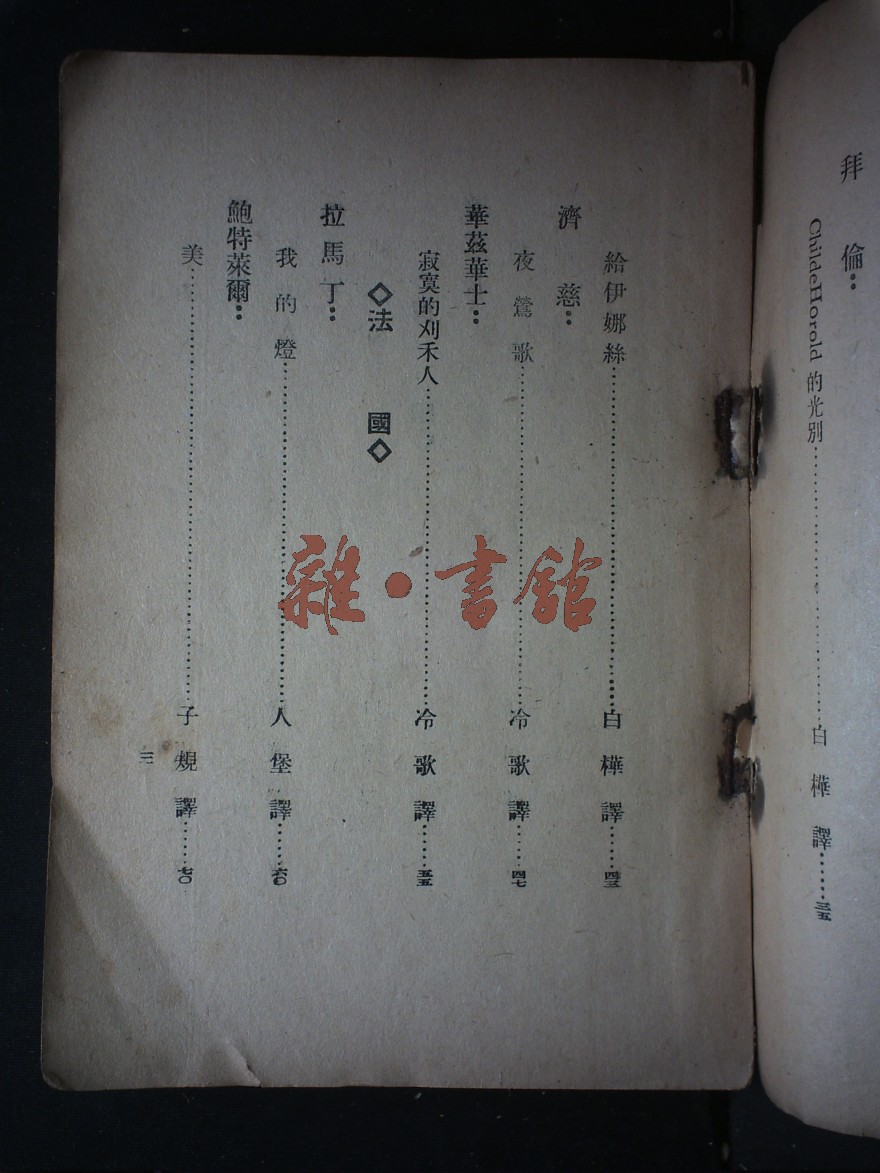 拜倫：
ChildeHorold 的光別……………………白樺譯……三五
給伊娜絲……………………白樺譯……四三
濟慈：
夜鶯歌……………………冷歌譯……四七
華茲華士：
寂寞的刈禾人……………………冷歌譯……五五
◇法國◇
拉馬丁：
我的燈……………………人堡譯……六〇
鮑特萊爾：
美……………………子規譯……七〇
三
雜·書館